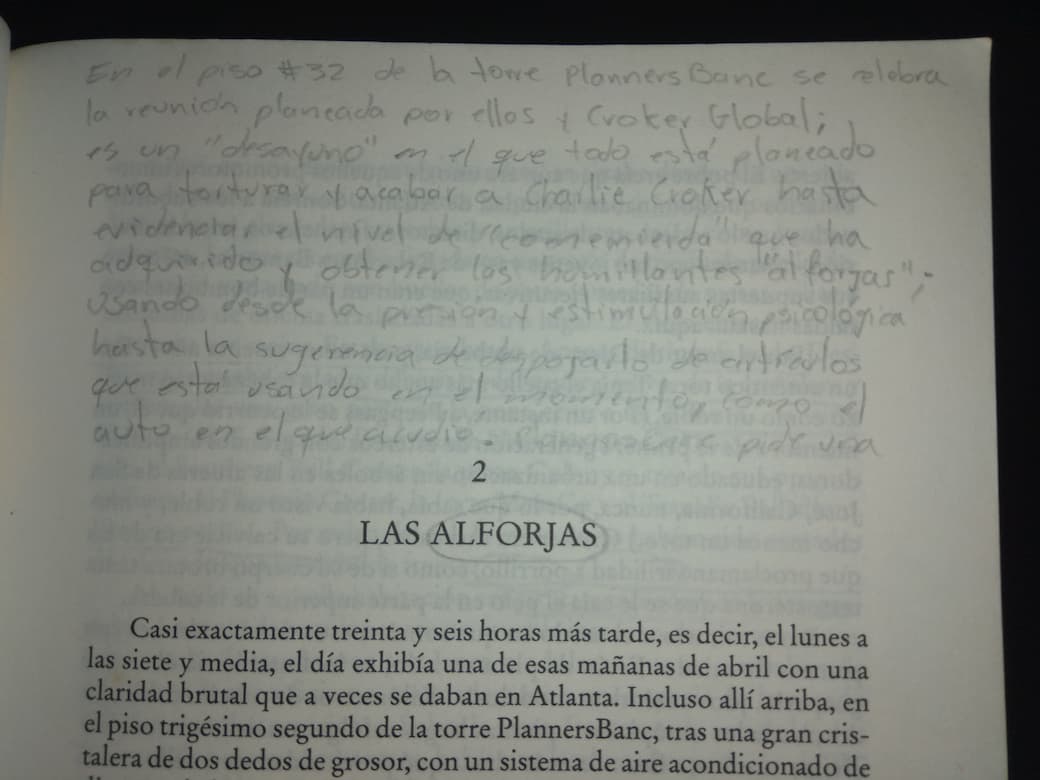 En el piso #32 de la torre PlannersBanc se celebra
la reunión planeada por ellos y Croker Global;
es un "desayuno" en el que todo está planeado
para torturar y acabar a Charlie Croker hasta
evidenciar el nivel de "comemierda" que ha
adquirido y obtener las humillantes "alforjas";
usando desde la presión y estimulación psicológica
hasta la sugerencia de despojarlo de artículos
que está usando en el momento, como el
auto en el que acudió. pide una
2
LAS ALFORJAS
Casi exactamente treinta y seis horas más tarde, es decir, el lunes a
las siete y media, el día exhibía una de esas mañanas de abril con una
claridad brutal que a veces se daban en Atlanta. Incluso allí arriba, en
el piso trigésimo segundo de la torre PlannersBanc, tras una gran cris-
talera de dos dedos de grosor, con un sistema de aire acondicionado de